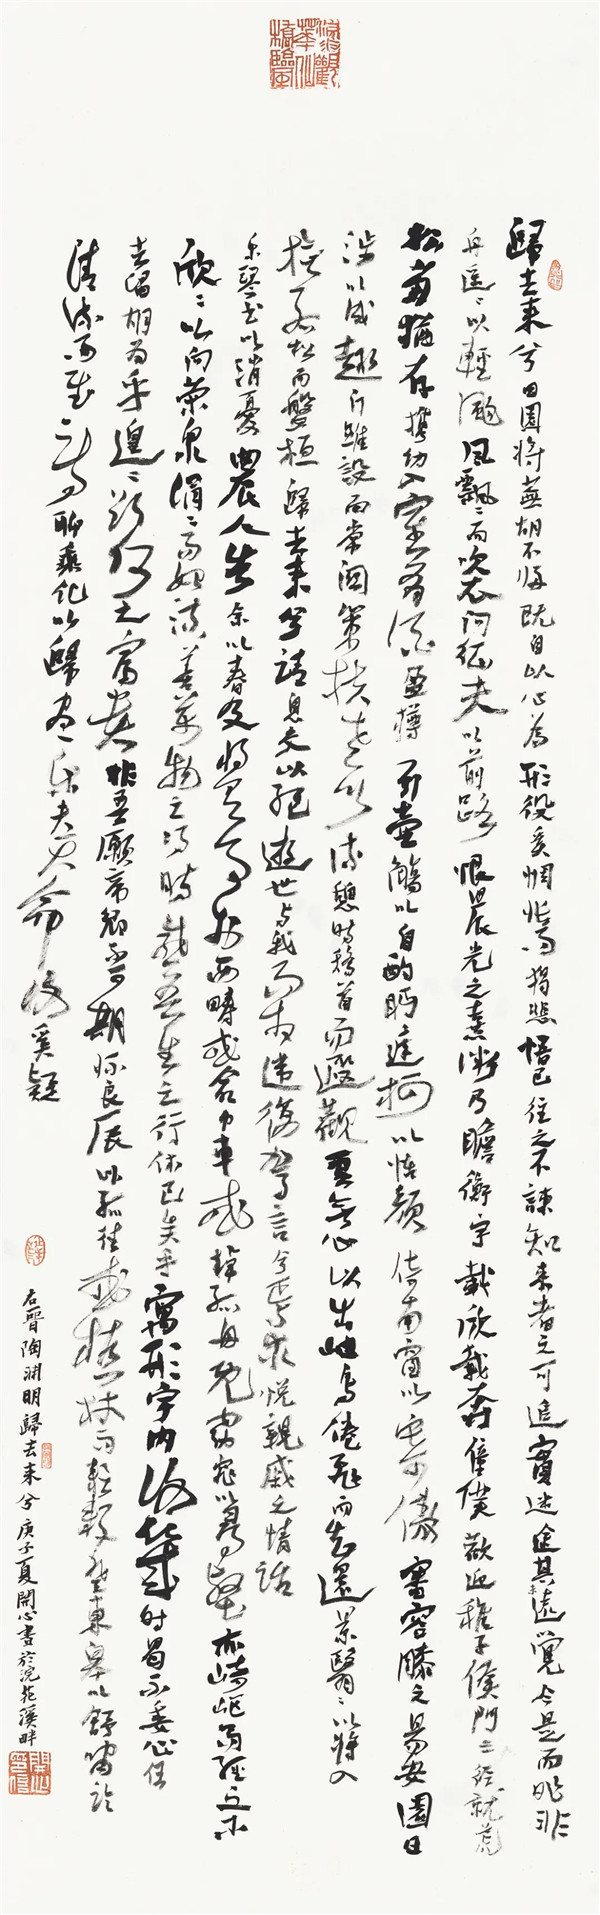 歸去來兮田園將蕪胡不歸既自以心為形役奚惆悵而獨悲悟已往之不諫知來者之可追實迷途其未遠覺今是而昨非
舟遙々以輕颺風飄々而吹衣問征夫以前路恨晨光之熹微乃瞻衡宇載欣載奔僮僕歡迎稚子候門三徑就荒
松菊猶存攜幼入室有酒盈樽引壺觴以自酌眄庭柯以怡顏倚南窗以寄傲審容膝之易安園日
涉以成趣門雖設而常關策扶老以流憩時矯首而遐觀雲無心以出岫鳥倦飛而知還景翳々以將入
撫孤松而盤桓歸去來兮請息交以絕遊世與我而相違復駕言兮焉求悅親戚之情話
樂琴書以消憂農人告余以春及將有事於西疇或命巾車或棹孤舟既窈窕以尋壑亦崎嶇而經丘木
欣々以向榮泉涓々而始流善萬物之得時感吾生之行休已矣乎寓形宇內復幾時曷不委心任
去留胡為乎遑々欲何之富貴非吾願帝鄉不可期懷良辰以孤往或植杖而耘耔登東皋以舒嘯臨
清流而賦詩聊乘化以歸盡樂夫天命復奚疑
右晉陶淵明歸去來兮庚子夏開心書於浣花溪畔
開心印信